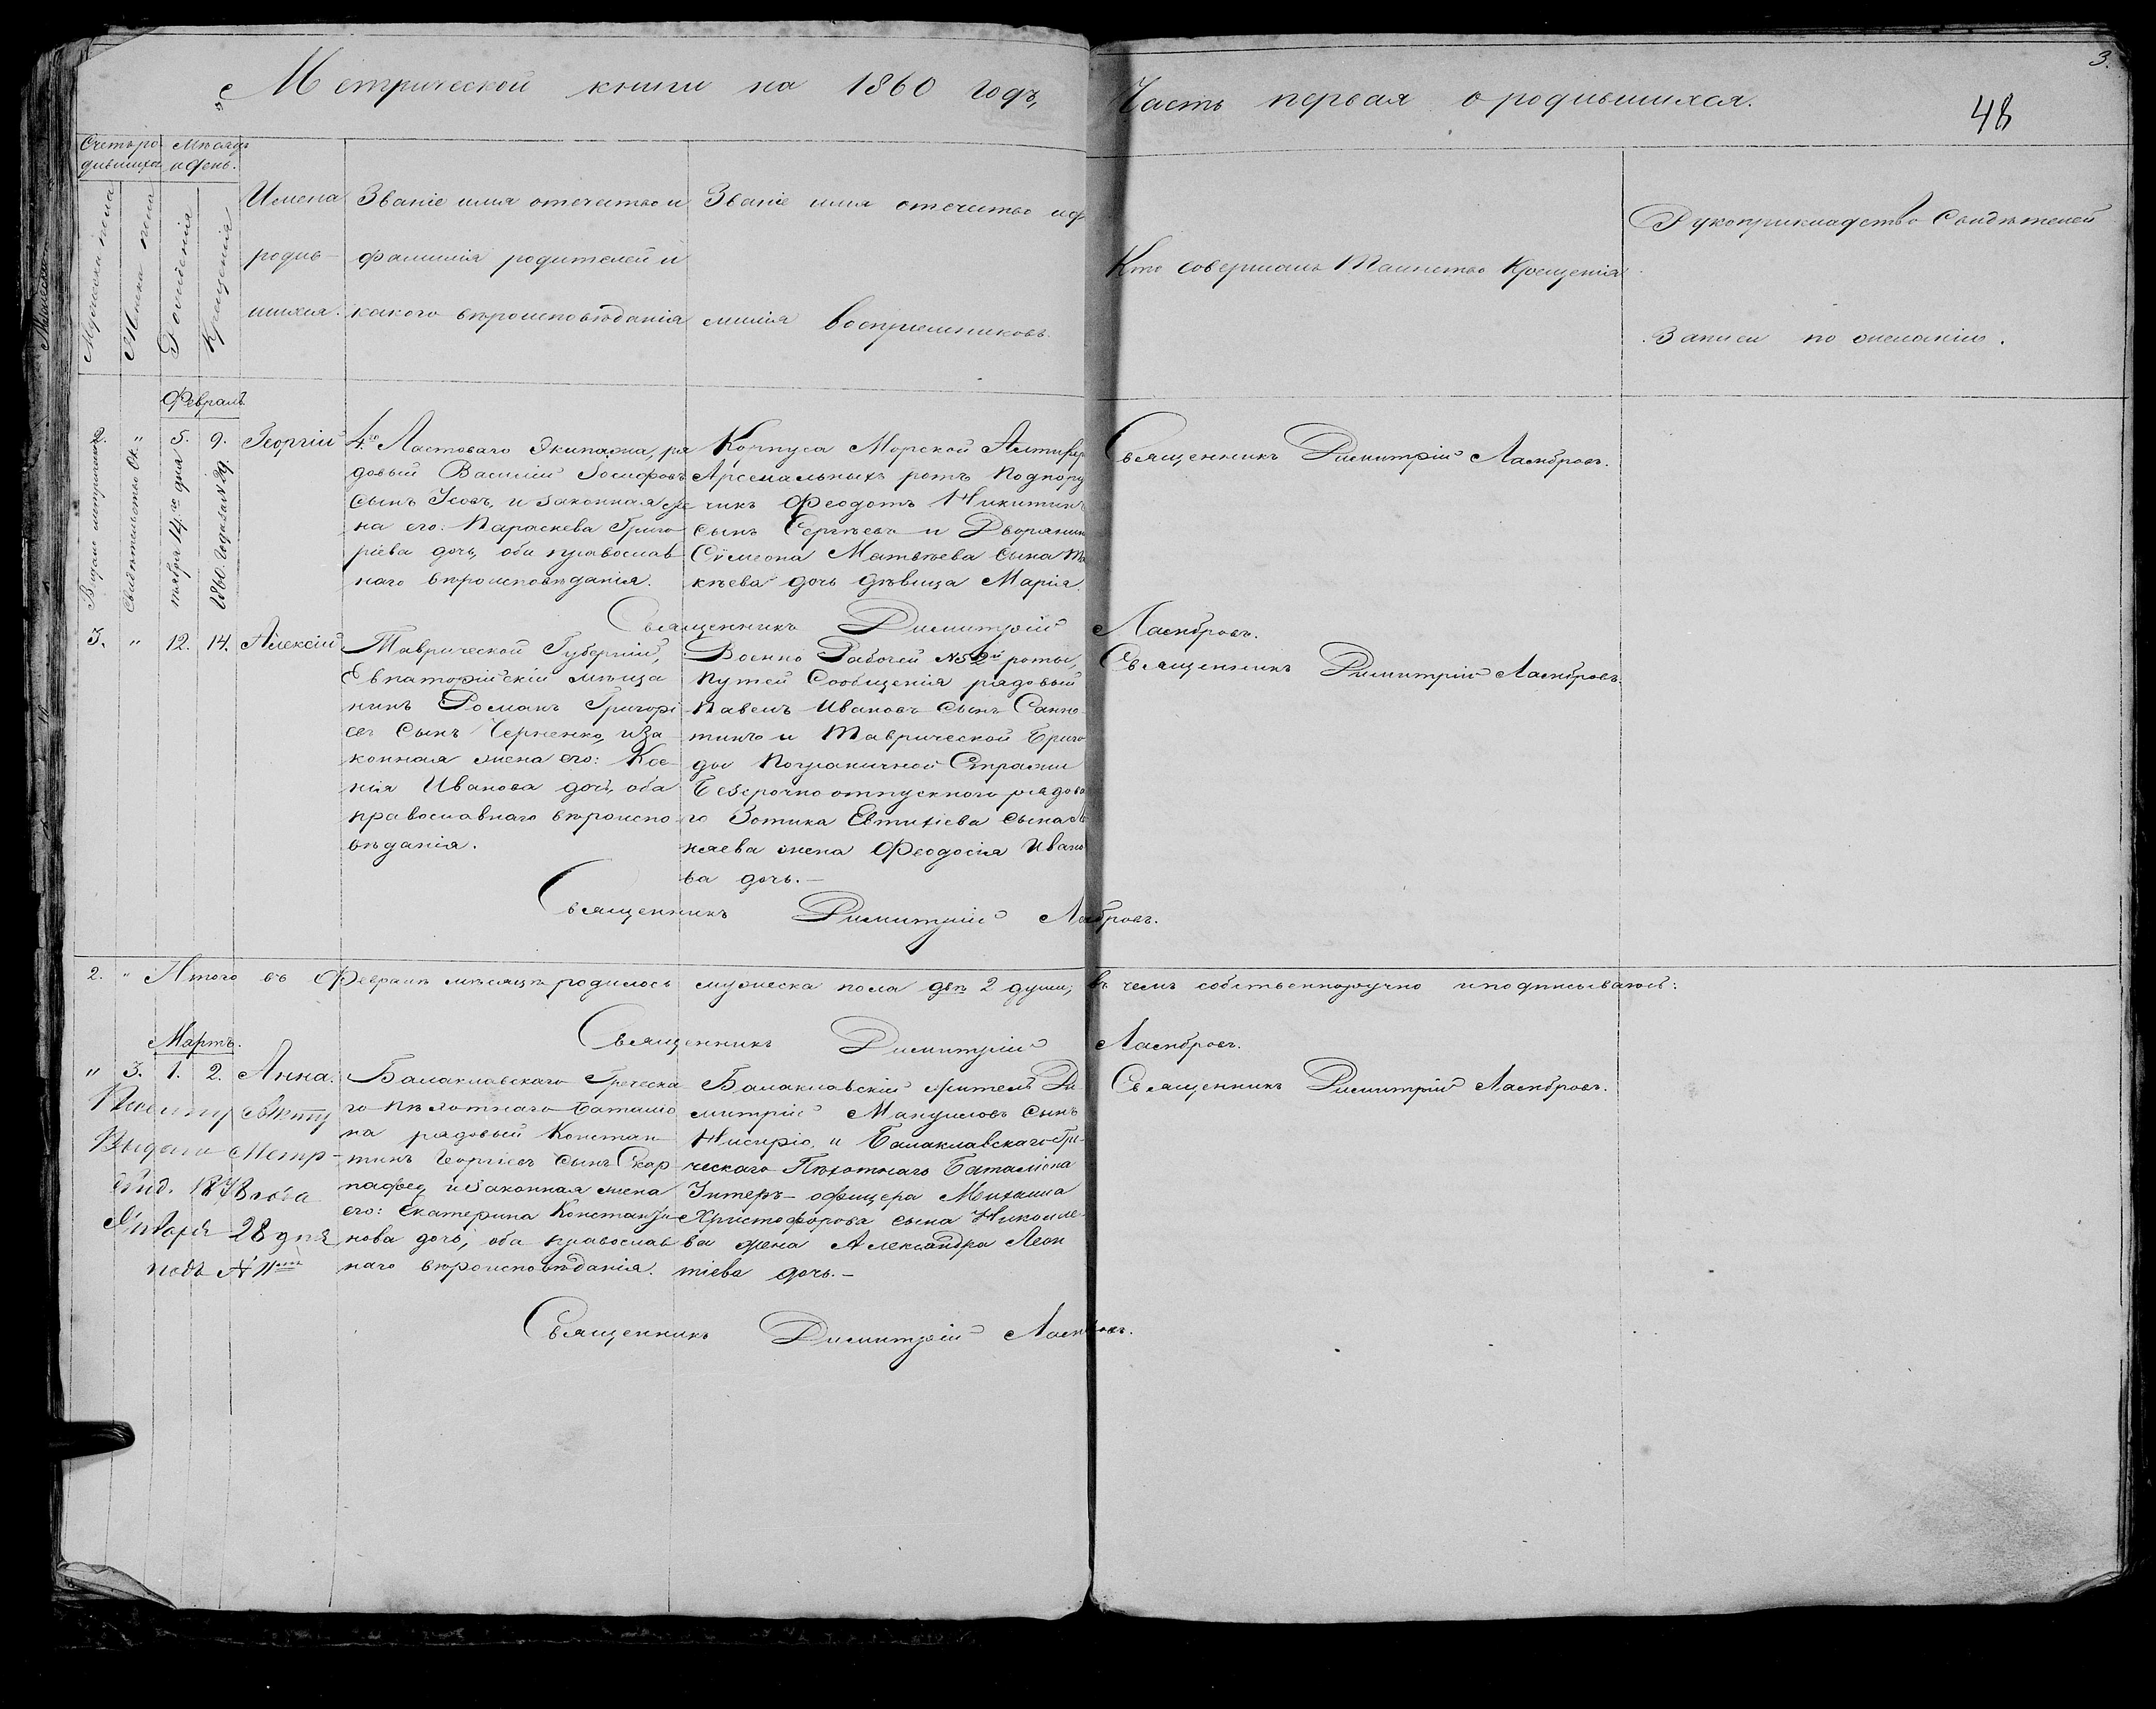 Метрической книги на 1860 годъ,
Часть первая о родившихся.
3.
48
Счетъ ро
дившихся
Мѣсяцъ
и день.
Мужеска пола
Женска пола
Рожденія
Крещенія
Имена
родив-
шихся.
Званіе имя отечество и
фамилія родителей и
какого вѣроисповѣданія
Званіе имя отечество и ф
милія воспріемниковъ.
Кто совершалъ Таинство Крещенія.
Рукоприкладство Свидѣтелей
Записи по желанію.
Февраль
2. " 5. 9. Георгій
Выдано метрическое
Свидѣтельство Ок.
тября 14го дня
1860. года за № 29.
4го Ластоваго Экипажа, ря
довый Василій Іосифовъ
Сынъ Усовъ, и законная же
на его: Параскева Григо
ріева дочь, оба православ
наго вѣроисповѣданія.
Корпуса Морской Артилер
Арсенальныхъ ротъ Подпору
чикъ Феодотъ Никитинъ
сынъ Сергѣевъ и Дворянин
Сѵмеона Матвѣева сына
кѣева дочь дѣвица Марія.
Священникъ Димитрій Ласкбровъ.
Священникъ Димитрій Ласкбровъ.
3. " 12. 14. Алексій
Таврической Губерніи,
Евпаторійскій мѣща
нинъ Романъ Григорі
евъ Сынъ Черненко, и за
конная жена его: Ксе-
нія Иванова дочь, оба
православнаго вѣроиспо
вѣданія.
Военно Рабочей № 52й роты,
Путей Сообщенія рядовый
Павелъ Ивановъ Сынъ
и Таврической Брига
ды Пограничной Стражи
Безсрочноотпускного рядова
го Зотика Евтихіева Сына
няева жена Феодосія Ивано
ва дочь.—
Священникъ Димитрій Ласкбровъ.
Священникъ Димитрій Ласкбровъ.
2. " Итого въ Февралѣ мѣсяцѣ родилось мужеска пола двѣ 2 души, въ чемъ собственноручно и подписываюсь:
Священникъ Димитрій Ласкбровъ.
Мартъ.
" 3. 1. 2. Анна.
Выдано Метр-
Свид. 1878 года
Января 28 дня
подъ № 11
Балаклавскаго Греческа
го пѣхотнаго баталіо
на рядовый Констан-
тинъ Георгіевъ Сынъ Скар
и законная жена
его: Екатерина Константи
нова дочь, оба православ
наго вѣроисповѣданія.
Балаклавскій житель Ди
митрій Мануиловъ Сынъ
и Балаклавскаго Гре-
ческаго Пѣхотнаго Баталіона
Унтеръ-офицера Михаила
Христофорова сына Николае-
ва жена Александра Леон
тіева дочь.—
Священникъ Димитрій Ласкбровъ.
Священникъ Димитрій Ласкбровъ.